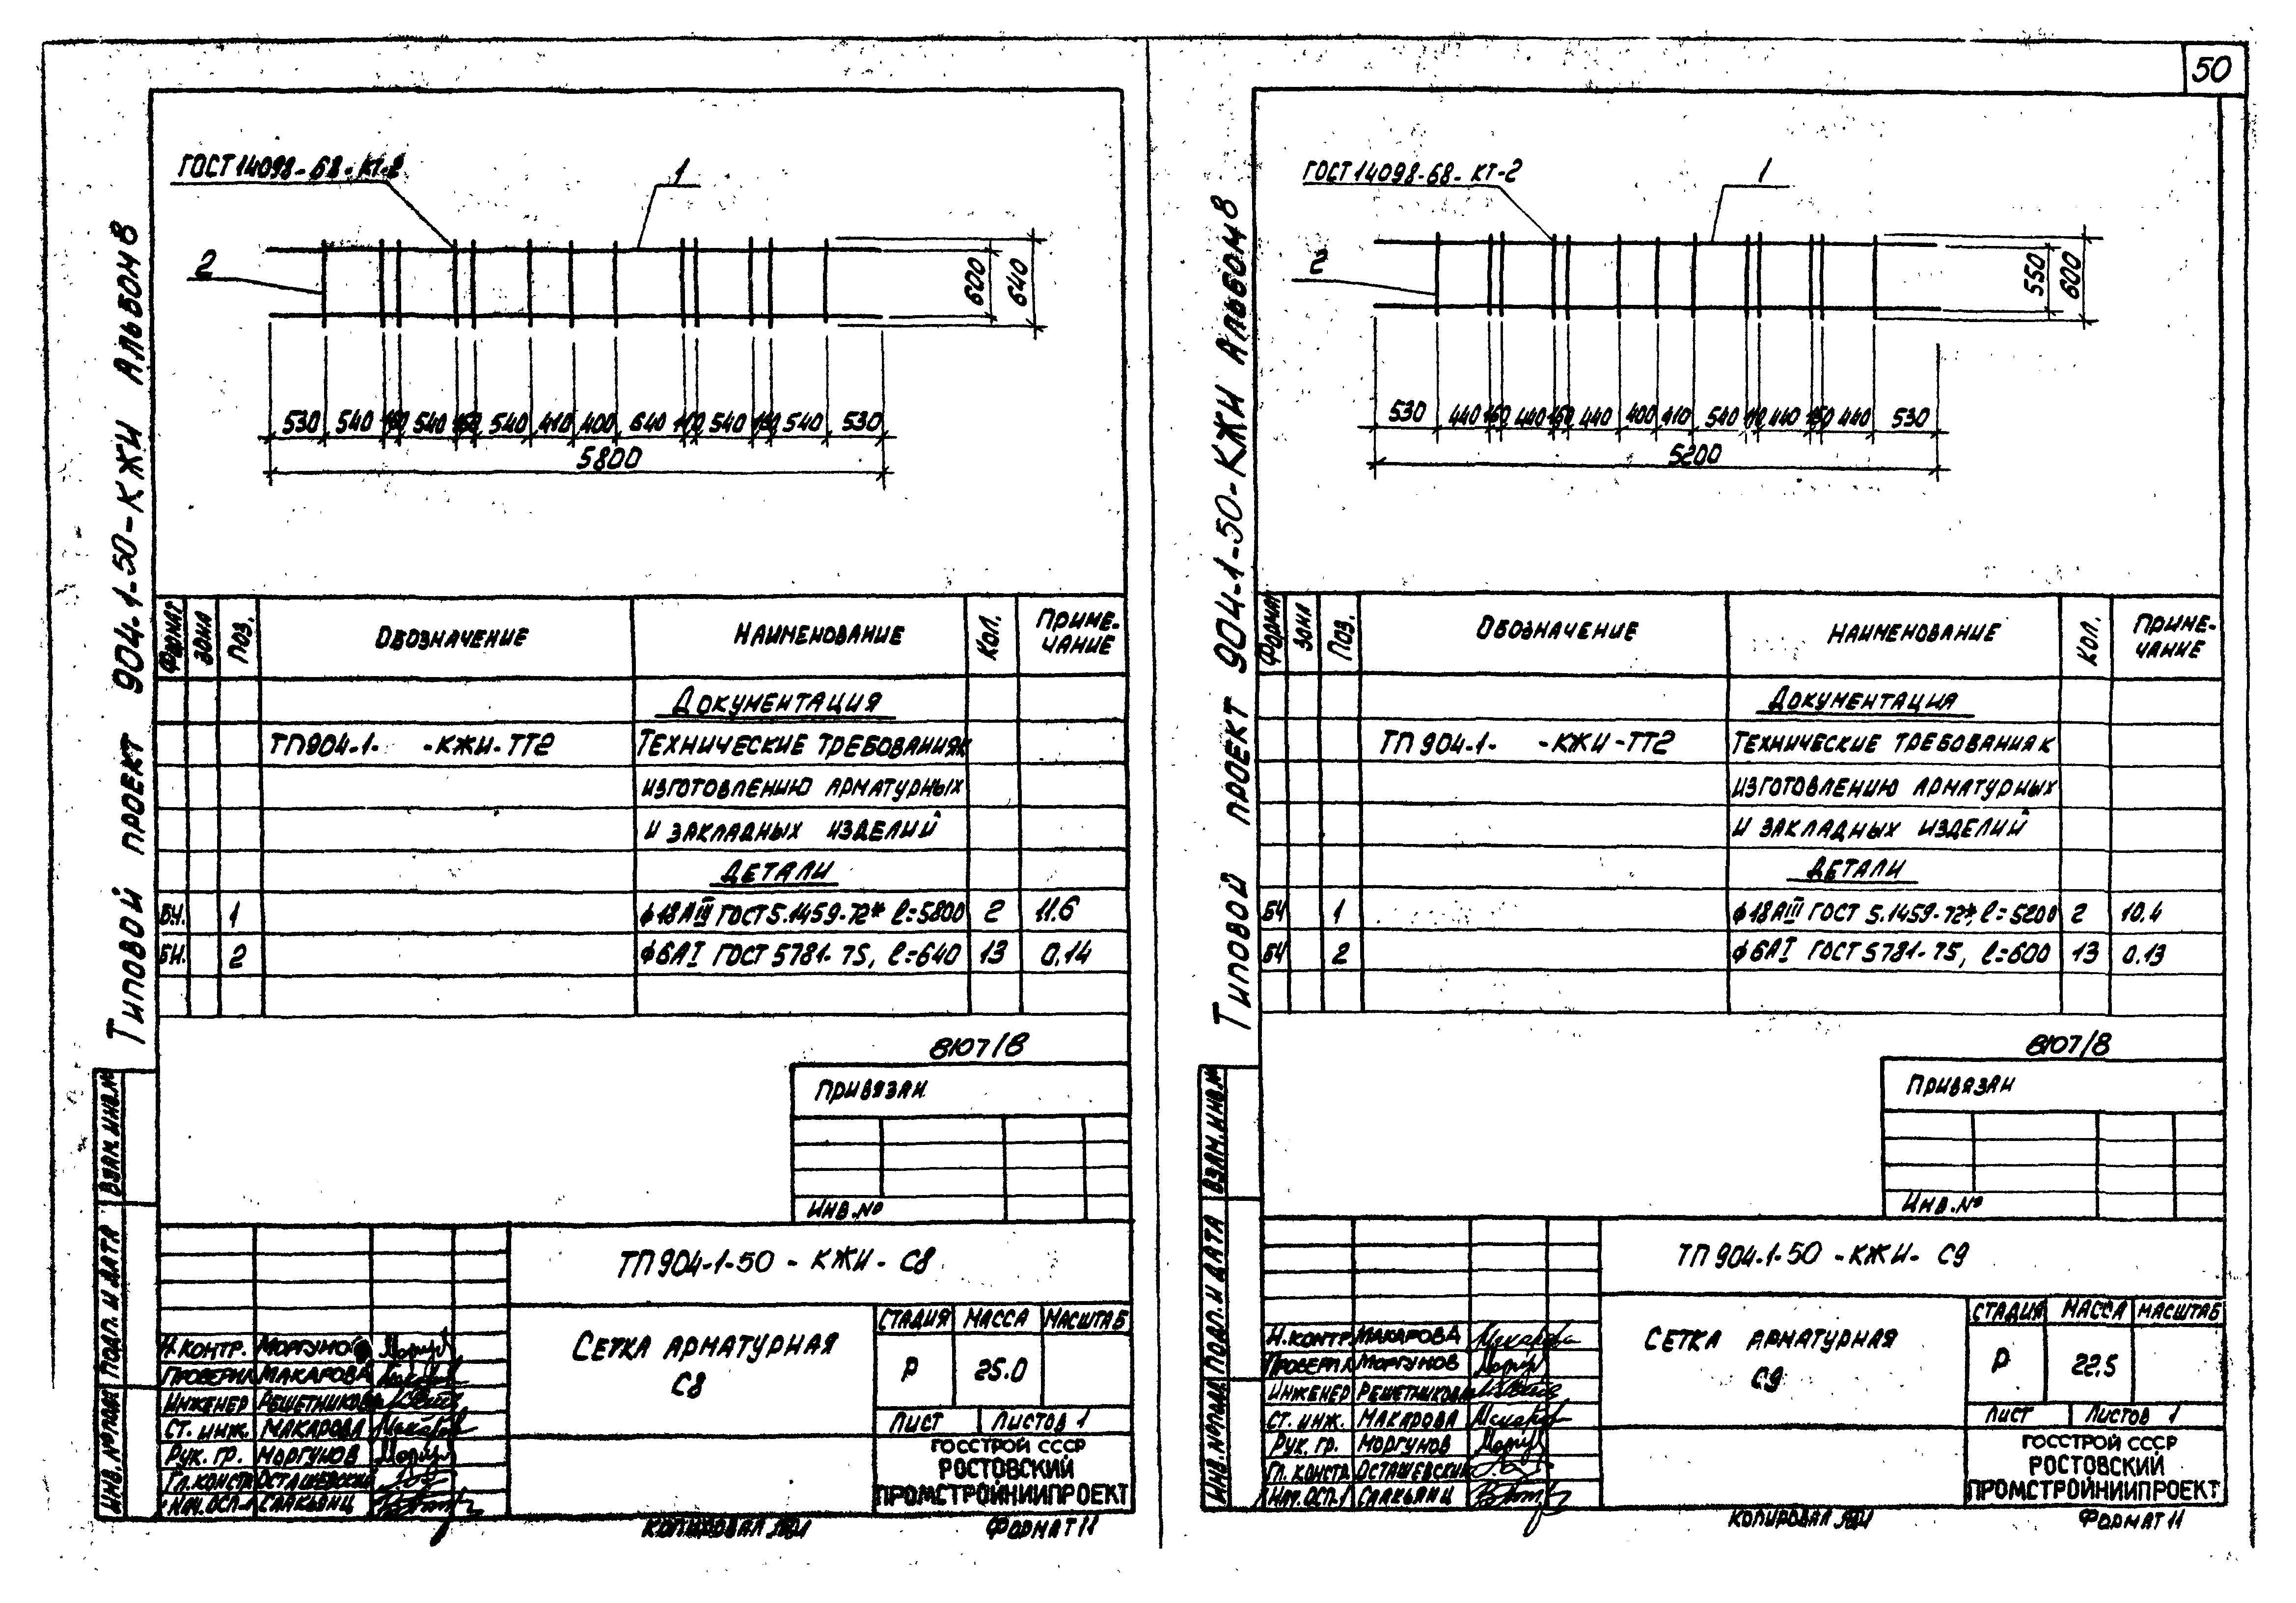 50
Типовой проект 904-1-50-КЖИ Альбом 8
ГОСТ 14098-68-КТ-2
1
2
600
640
530 540 540 540 410 400 640 110 540 540 530
5800
Формат Зона Поз. Обозначение Наименование Кол. Приме-
чание
Документация
ТП904-1- -КЖИ-ТТ2 Технические требования к
изготовлению арматурных
и закладных изделий
Детали
БЧ. 1 ф18АIII ГОСТ 5.1459-72* ℓ=5800 2 11.6
БЧ. 2 ф6АI ГОСТ 5781-75, ℓ=640 13 0.14
8107/8
Привязан
Инв.№
Взам.инв.№
Подп. и дата
Инв.№подл
ТП904-1-50-КЖИ-С8
Сетка арматурная
С8
Стадия Масса Масштаб
Р 25.0
Лист Листов 1
Госстрой СССР
Ростовский
Промстройниипроект
Н.контр. Моргунов
Проверил Макарова
Инженер Решетникова
Ст. инж. Макарова
Рук. гр. Моргунов
Гл.констр Осташевский
Нач.ОСП-1
Копировал
Формат 11
Типовой проект 904-1-50-КЖИ Альбом 8
ГОСТ 14098-68-КТ-2
1
2
550
600
530 440 160 440 160 440 400 410 540 110 440 160 440 530
5200
Формат Зона Поз. Обозначение Наименование Кол. Приме-
чание
Документация
ТП904-1- -КЖИ-ТТ2 Технические требования к
изготовлению арматурных
и закладных изделий
Детали
БЧ 1 ф18АIII ГОСТ 5.1459-72*, ℓ=5200 2 10.4
БЧ 2 ф6АI ГОСТ 5781-75, ℓ=600 13 0.13
8107/8
Привязан
Инв.№
Взам.инв.№
Подп. и дата
Инв.№подл
ТП904-1-50-КЖИ-С9
Сетка арматурная
С9
Стадия Масса Масштаб
Р 22.5
Лист Листов 1
Госстрой СССР
Ростовский
Промстройниипроект
Н.контр. Макарова
Проверил Моргунов
Инженер Решетникова
Ст. инж. Макарова
Рук. гр. Моргунов
Гл. констр. Осташевский
Нач.ОСП-1
Копировал
Формат 11